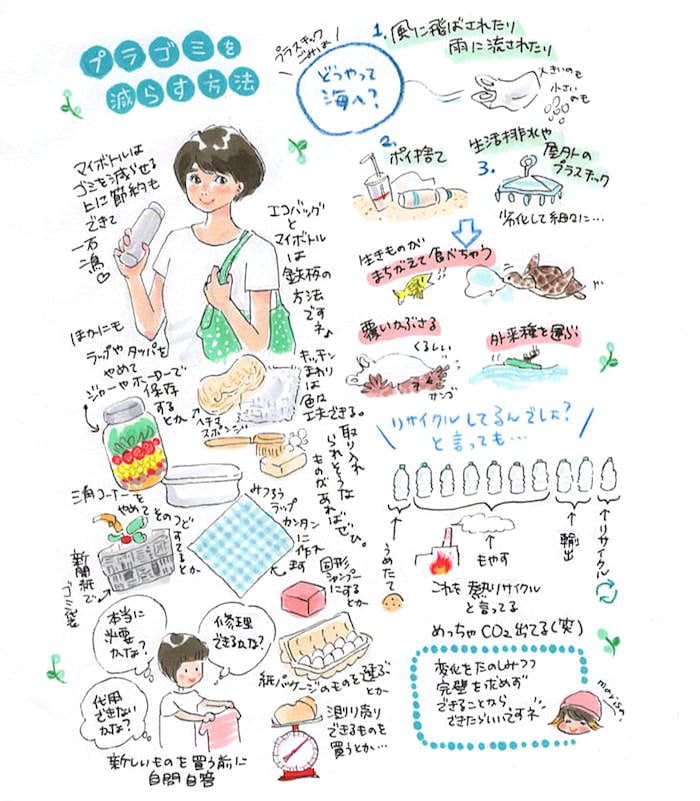 プラゴミを
減らす方法
マイボトルは
ゴミを減らせる
上に節約も
できて
一石
二鳥♡
エコバッグ
と
マイボトル
は
鉄板の
方法
です
ネ♪
ほかにも
ラップやタッパを
やめて
ジャーやホーローで
保存
するとか
キッチン
まわり
は
色々
工夫できる。
ヘチマ
スポンジ
取り入れ
られそうな
ものがあればぜひ。
三角コーナーを
やめてそのつど
すてるとか
新聞紙で
ゴミ袋
みつろう
ラップ
カンタン
に
作れ
ます
固形
シャンプー
にする
とか
紙パッケージのものを選ぶ
とか
測り売り
できるものを
買うとか…
本当に
必要
かな?
修理
できるかな?
代用
できない
かな?
新しいものを買う前に
自問自答
プラスチック
ごみは
どうやって
海へ?
1. 風に飛ばされたり
雨に流されたり
大きいのも
小さい
のも
2.
ポイ捨て
生活排水や
屋外の
プラスチック
3.
劣化して細々に…
生きものが
まちがえて食べちゃう
覆いかぶさる
くるしい
サンゴ
外来種を運ぶ
リサイクルしてるんでしょ?
と言っても…
うめたて
もやす
輸出
リサイクル
これを熱リサイクル
と言ってる
めっちゃCO2出てる(笑)
変化をたのしみつつ
完璧を求めず
できることから
できたらいいですネ